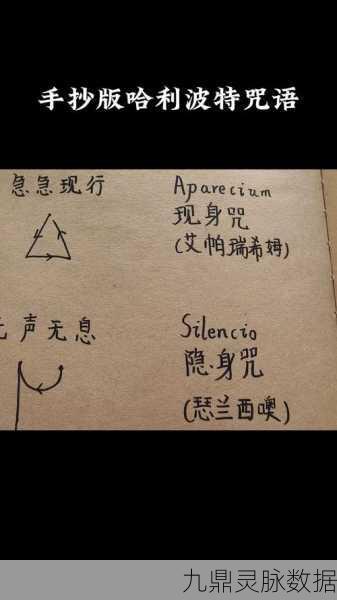 手抄版哈利波特咒语
急急现行
Aparecium
现身咒
(艾帕瑞希姆)
声无息
Silencio
隐身咒
(瑟兰西噢)
九鼎灵脉数据